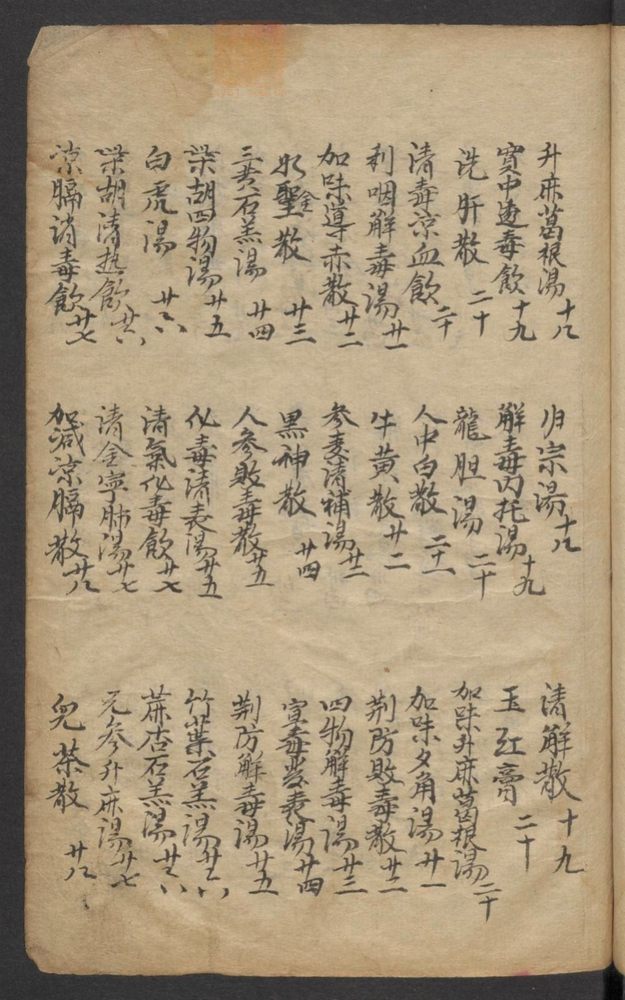 升麻葛根湯 十八
归宗湯 十八
清解散 十九
寬中透毒飲 十九
解毒内托湯 十九
玉红膏 二十
洗肝散 二十
龍胆湯 二十
加味升麻葛根湯 二十
清毒凉血飲 二十
人中白散 二十一
加味夕角湯 廿一
利咽解毒湯 廿一
牛黄散 廿二
荆防敗毒散 廿二
加味導赤散 廿二
参麦清補湯 廿二
四物解毒湯 廿三
聖金散 廿三
黑神散 廿四
宣毒发表湯 廿四
三黄石羔湯 廿四
人参敗毒散 廿五
荆防解毒湯 廿五
柴胡四物湯 廿五
化毒清表湯 廿五
竹葉石羔湯 廿六
白虎湯 廿六
清氣化毒飲 廿七
蔴杏石羔湯 廿六
柴胡清热飲 廿六
清金寧肺湯 廿七
元参升麻湯 廿七
凉膈消毒飲 廿七
加减凉膈散 廿八
兒茶散 廿八